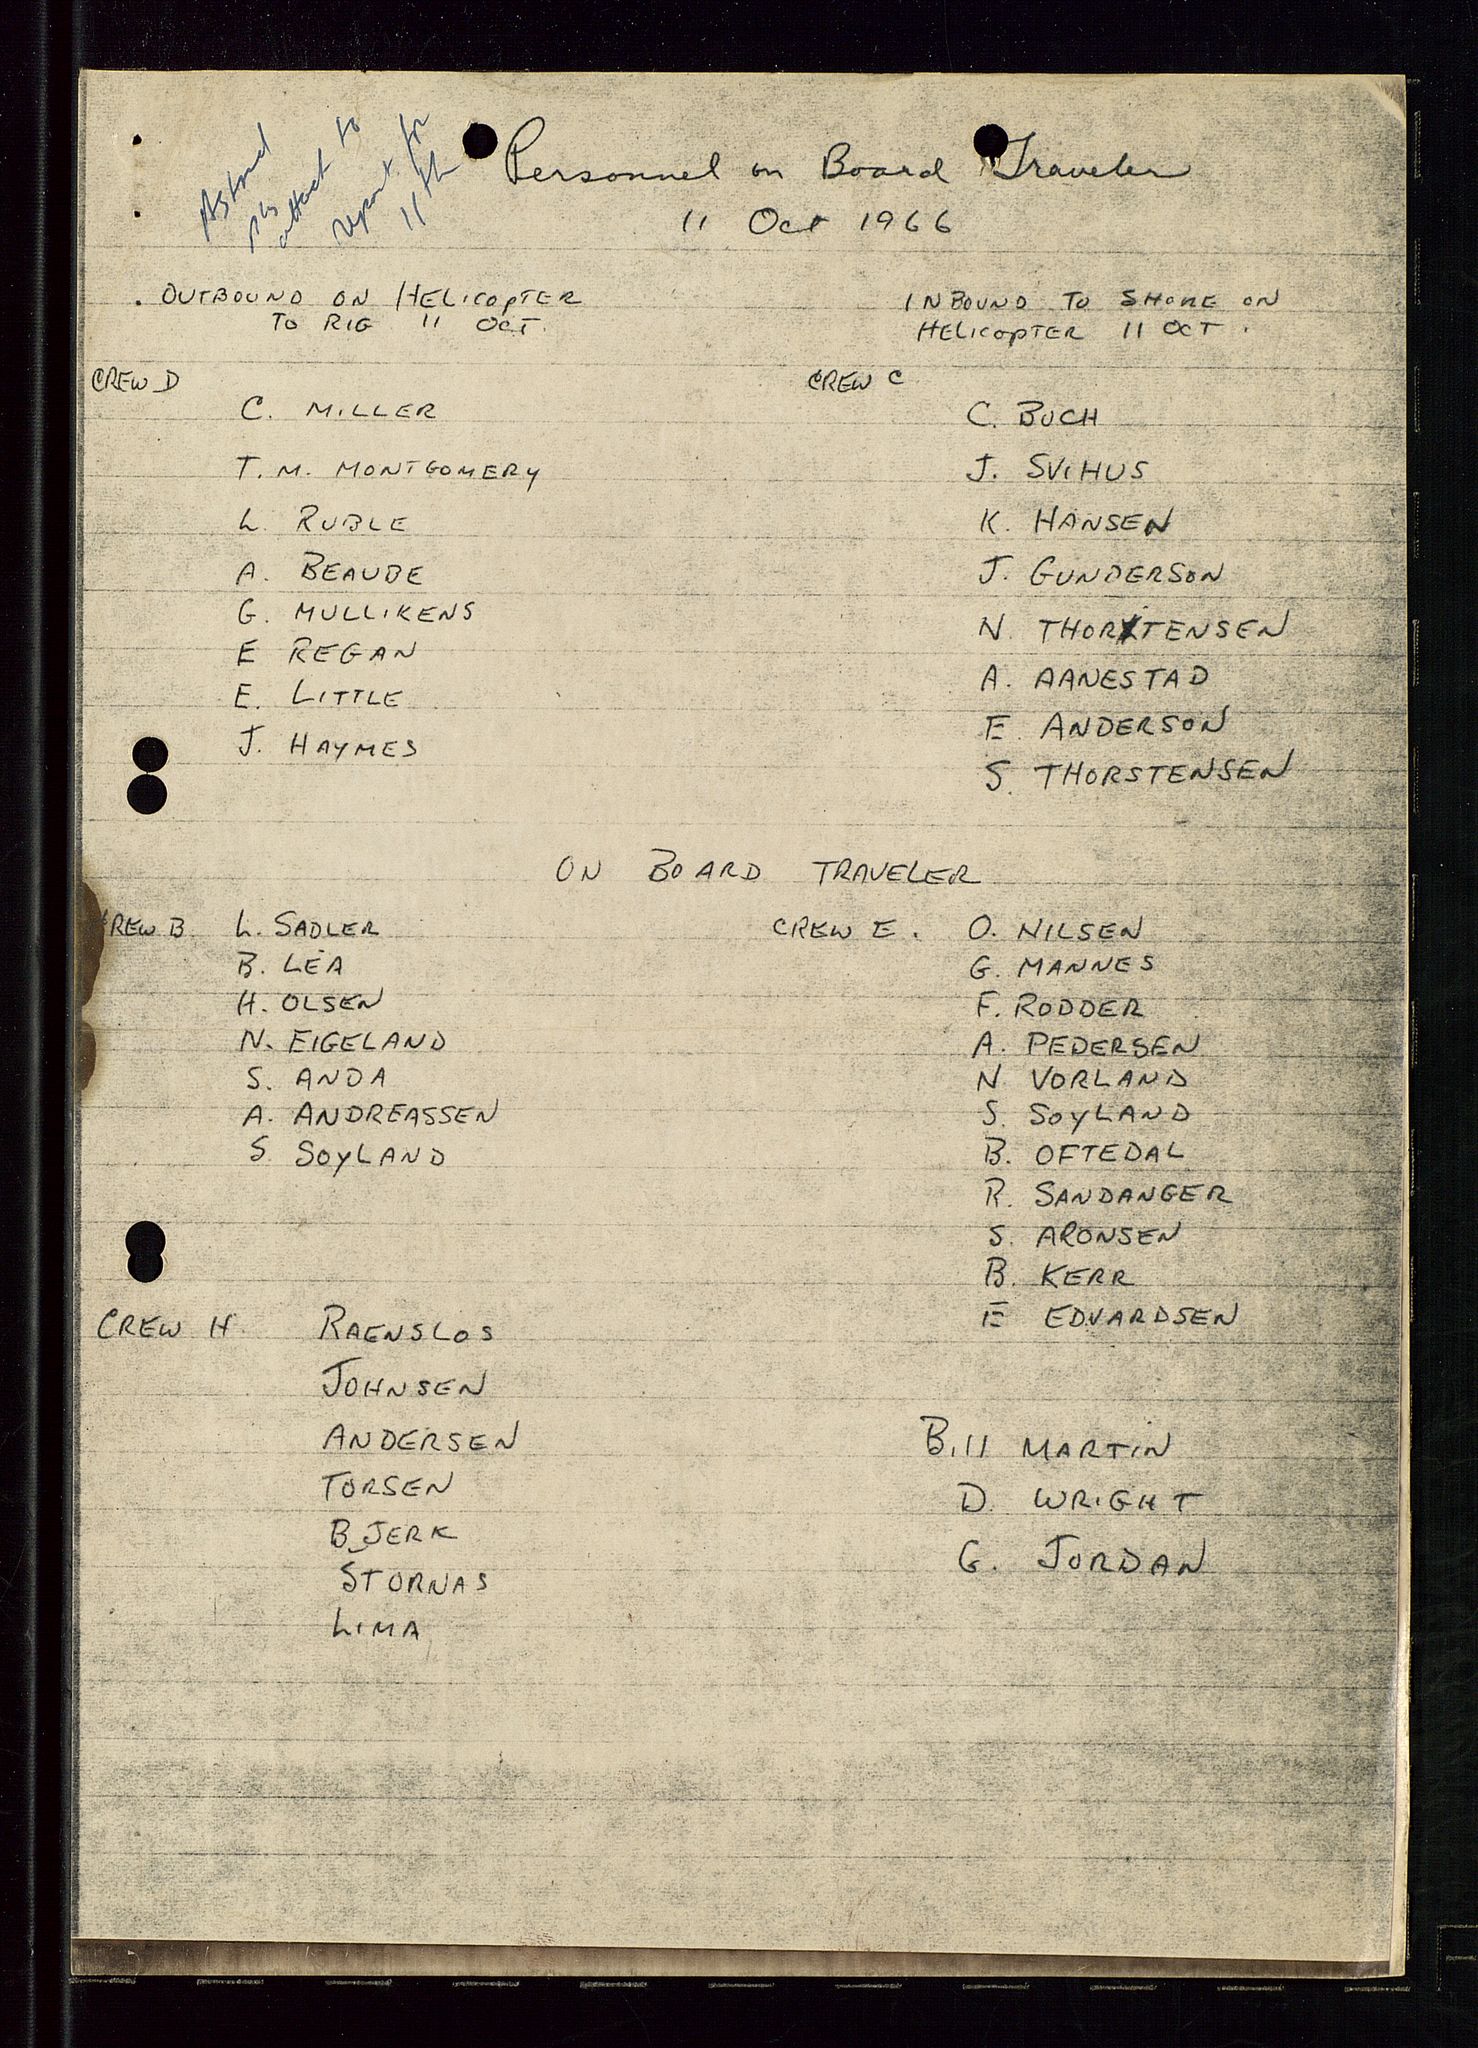 Astrid
Pls
attach to
report for
11th
Personnel on Board Traveler
11 Oct 1966
. OUTBOUND ON HELICOPTER
TO RIG 11 OCT.
CREW D
C. MILLER
T. M. MONTGOMERY
L. RUBLE
A. BEAUDE
G. MULLIKENS
E REGAN
E. LITTLE
J. HAYMES
INBOUND TO SHORE ON
HELICOPTER 11 OCT.
CREW C
C. BUCH
J. SVIHUS
K. HANSEN
J. GUNDERSON
N. THORSTENSEN
A. AANESTAD
E. ANDERSON
S. THORSTENSEN
ON BOARD TRAVELER
CREW B. L. SADLER
B. LEA
H. OLSEN
N. EIGELAND
S. ANDA
A. ANDREASSEN
S. SOYLAND
CREW E. O. NILSEN
G. MANNES
F. RODDER
A. PEDERSEN
N VORLAND
S. SOYLAND
B. OFTEDAL
R. SANDANGER
S. ARONSEN
B. KERR
E EDVARDSEN
CREW H. RAENSLOS
JOHNSEN
ANDERSEN
TORSEN
BJERK
STORNAS
LIMA
Bill MARTIN
D. WRIGHT
G. JORDAN